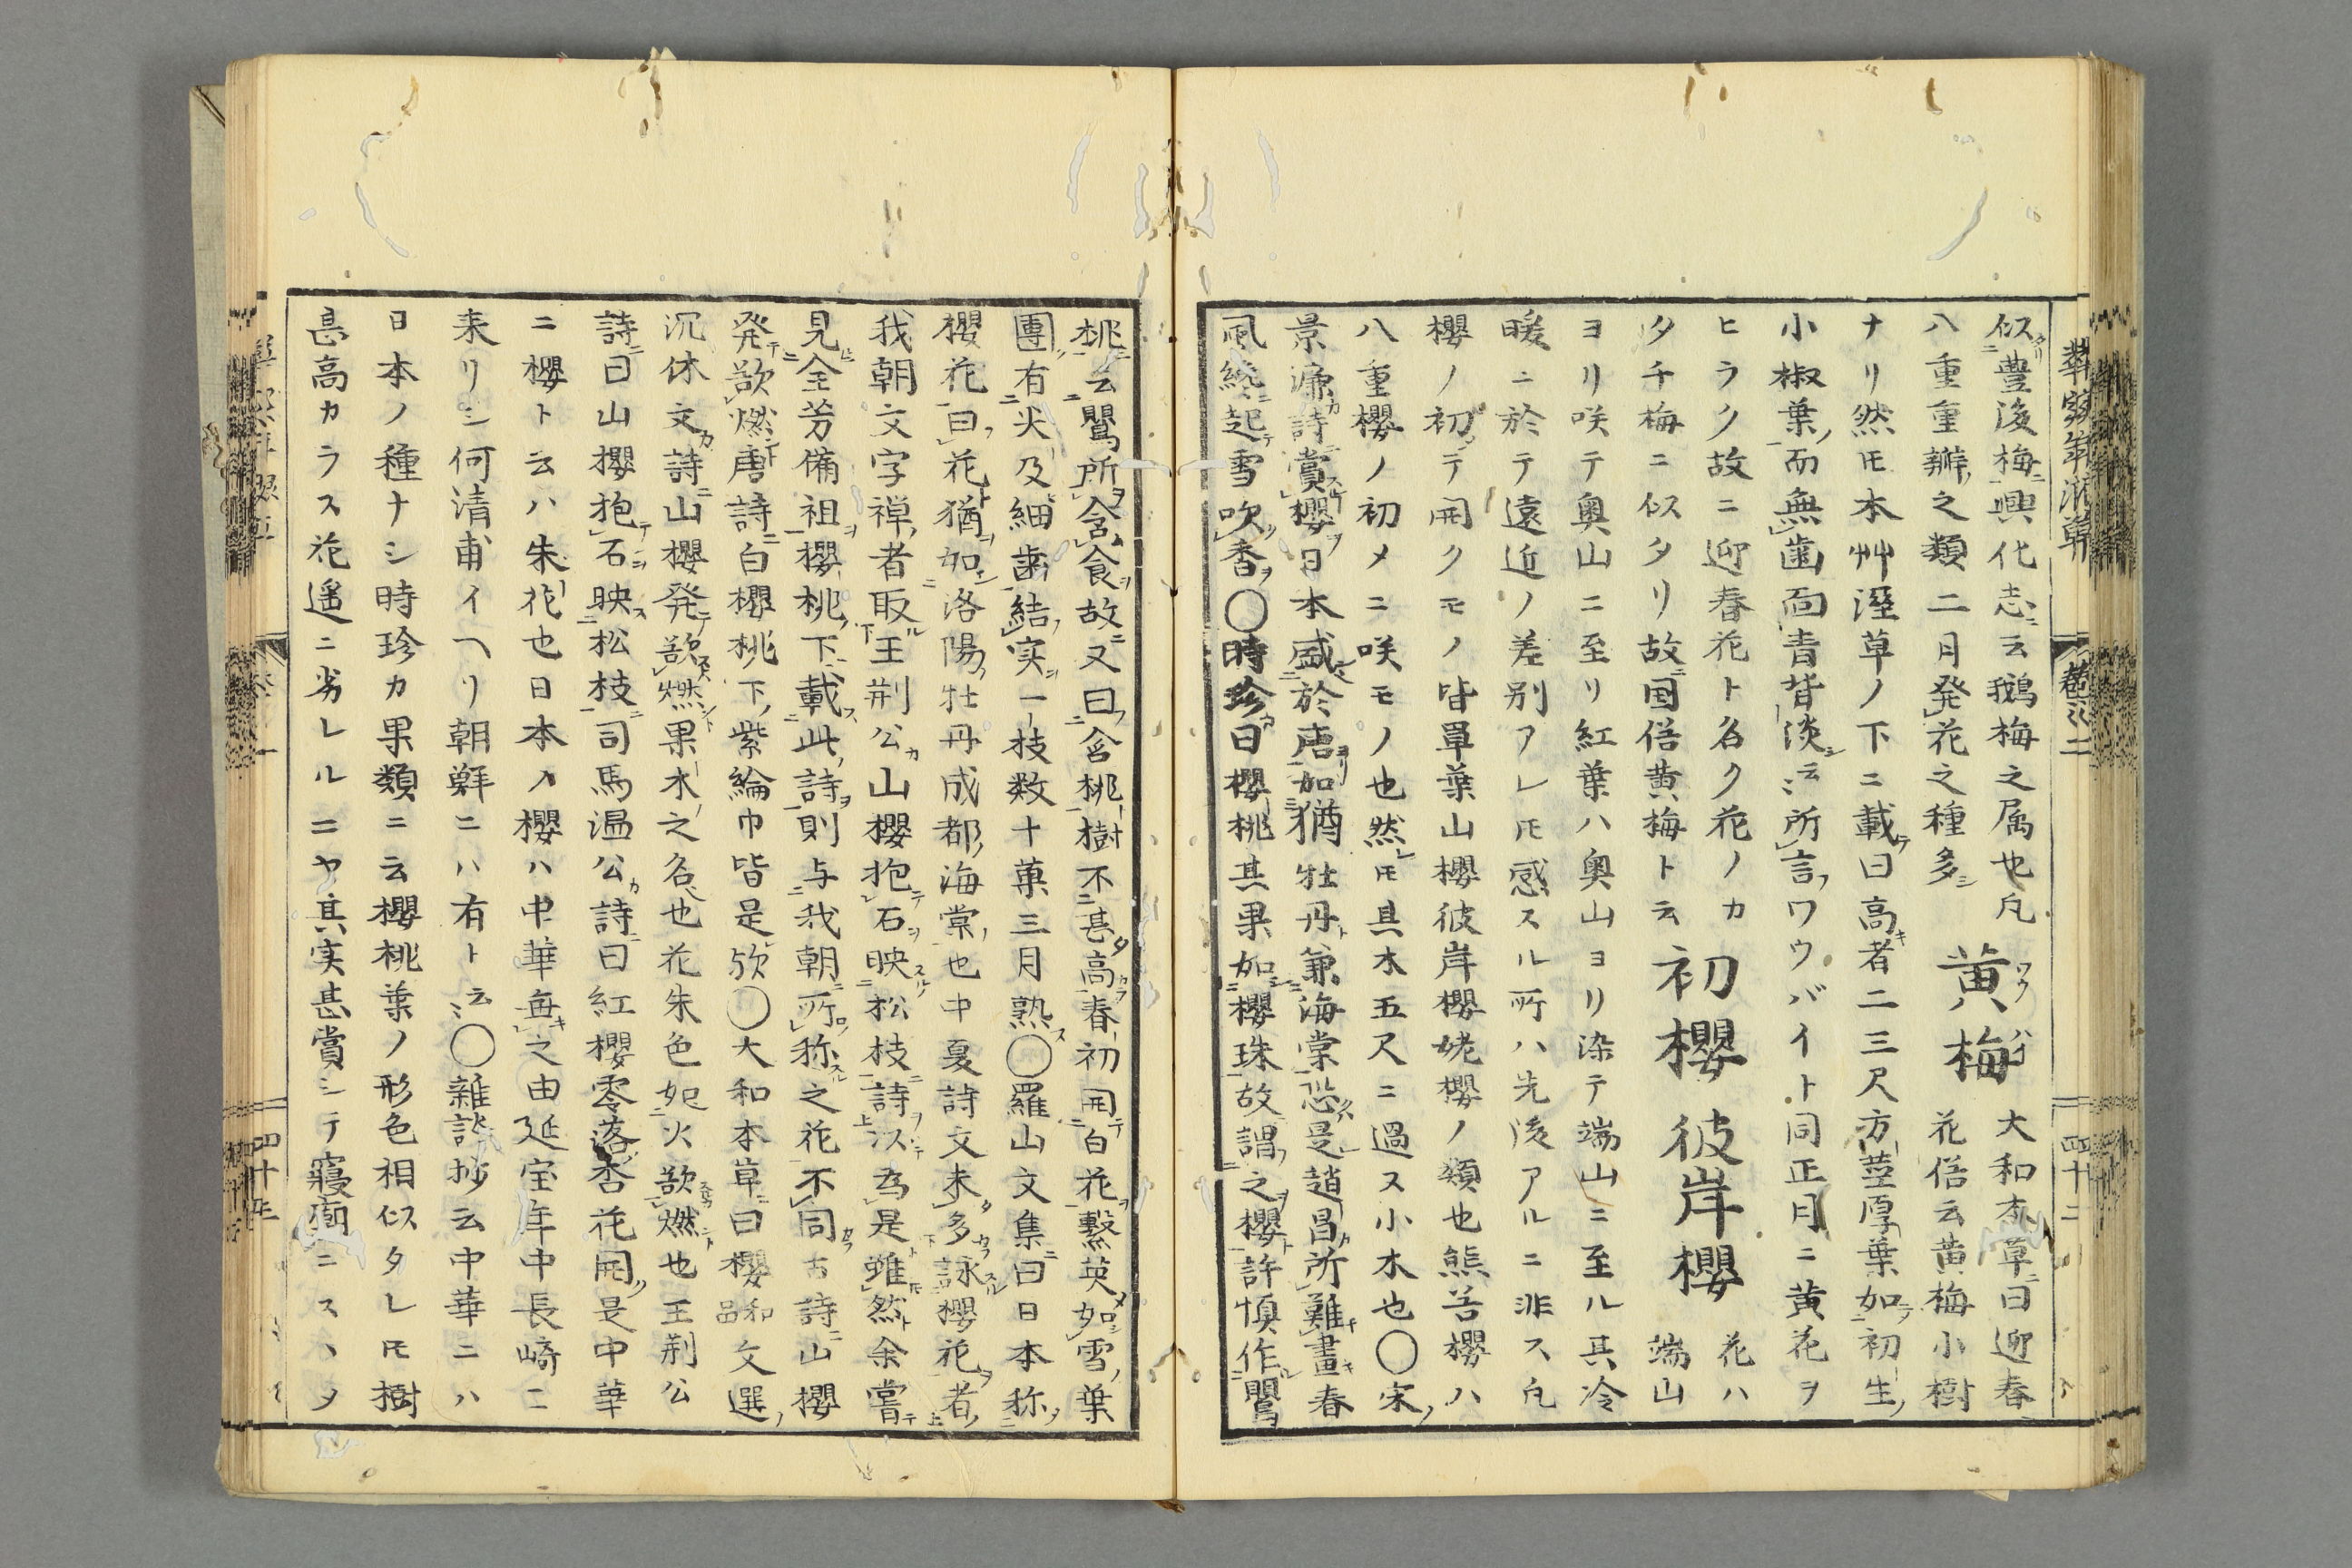 華実年浪草 巻之二 四十二
似豊後梅興化志云鵝梅之属也凢
八重重瓣之類二月発花之種多
黄梅 ワウバイ
大和本草曰迎春
花俗云黄梅小樹
ナリ然トモ本艸湿草ノ下ニ載曰高者二三尺方茎厚葉如初生
小椒葉而無歯面青背淡云云所言ワウバイト同正月ニ黄花ヲ
ヒラク故ニ迎春花ト名ク花ノカ
タチ梅ニ似タリ故国俗黄梅ト云
初櫻 彼岸櫻
花ハ
端山
ヨリ咲テ奥山ニ至リ紅葉ハ奥山ヨリ染テ端山ニ至ル其冷
暖ニ於テ遠近ノ差別アレトモ感スル所ハ先後アルニ非ス凢
櫻ノ初テ開クモノ皆単葉山櫻彼岸櫻姥櫻ノ類也熊谷櫻ハ
八重櫻ノ初メニ咲モノ也然トモ其木五尺ニ過ス小木也〇宋
景濂詩賞櫻日本盛於唐如猶牡丹兼海棠恐是趙昌所難畫春
風纔起雪吹香〇時珍曰櫻桃其果如櫻珠故謂之櫻許慎作鸎
桃云鸎所含食故又曰含桃樹不甚高春初開白花繁英如雪葉
團有尖及細歯結実一枝数十菓三月熟〇羅山文集曰日本称
櫻花曰花猶如洛陽牡丹成都海棠也中夏詩文未多詠櫻花者
我朝文字禅者取王荊公山櫻抱石映松枝詩以為是雖然余嘗
見全芳備祖櫻桃下載此詩則与我朝所称之花不同古詩山櫻
発欲燃唐詩白櫻桃下紫綸巾皆是欤〇大和本草曰櫻和品文選
沉休文詩山櫻発欲燃果木之名也花朱色如火欲燃也王荊公
詩曰山櫻抱石映松枝司馬温公詩曰紅櫻零落杏花開是中華
ニ櫻ト云ハ朱花也日本ノ櫻ハ中華無之由延宝年中長崎ニ
来リシ何清甫イヘリ朝鮮ニハ有ト云云〇雑談抄云中華ニハ
日本ノ種ナシ時珍カ果類ニ云櫻桃葉ノ形色相似タレトモ樹
甚高カラス花遥ニ劣レルニヤ其実甚賞シテ寝廟ニスヽ